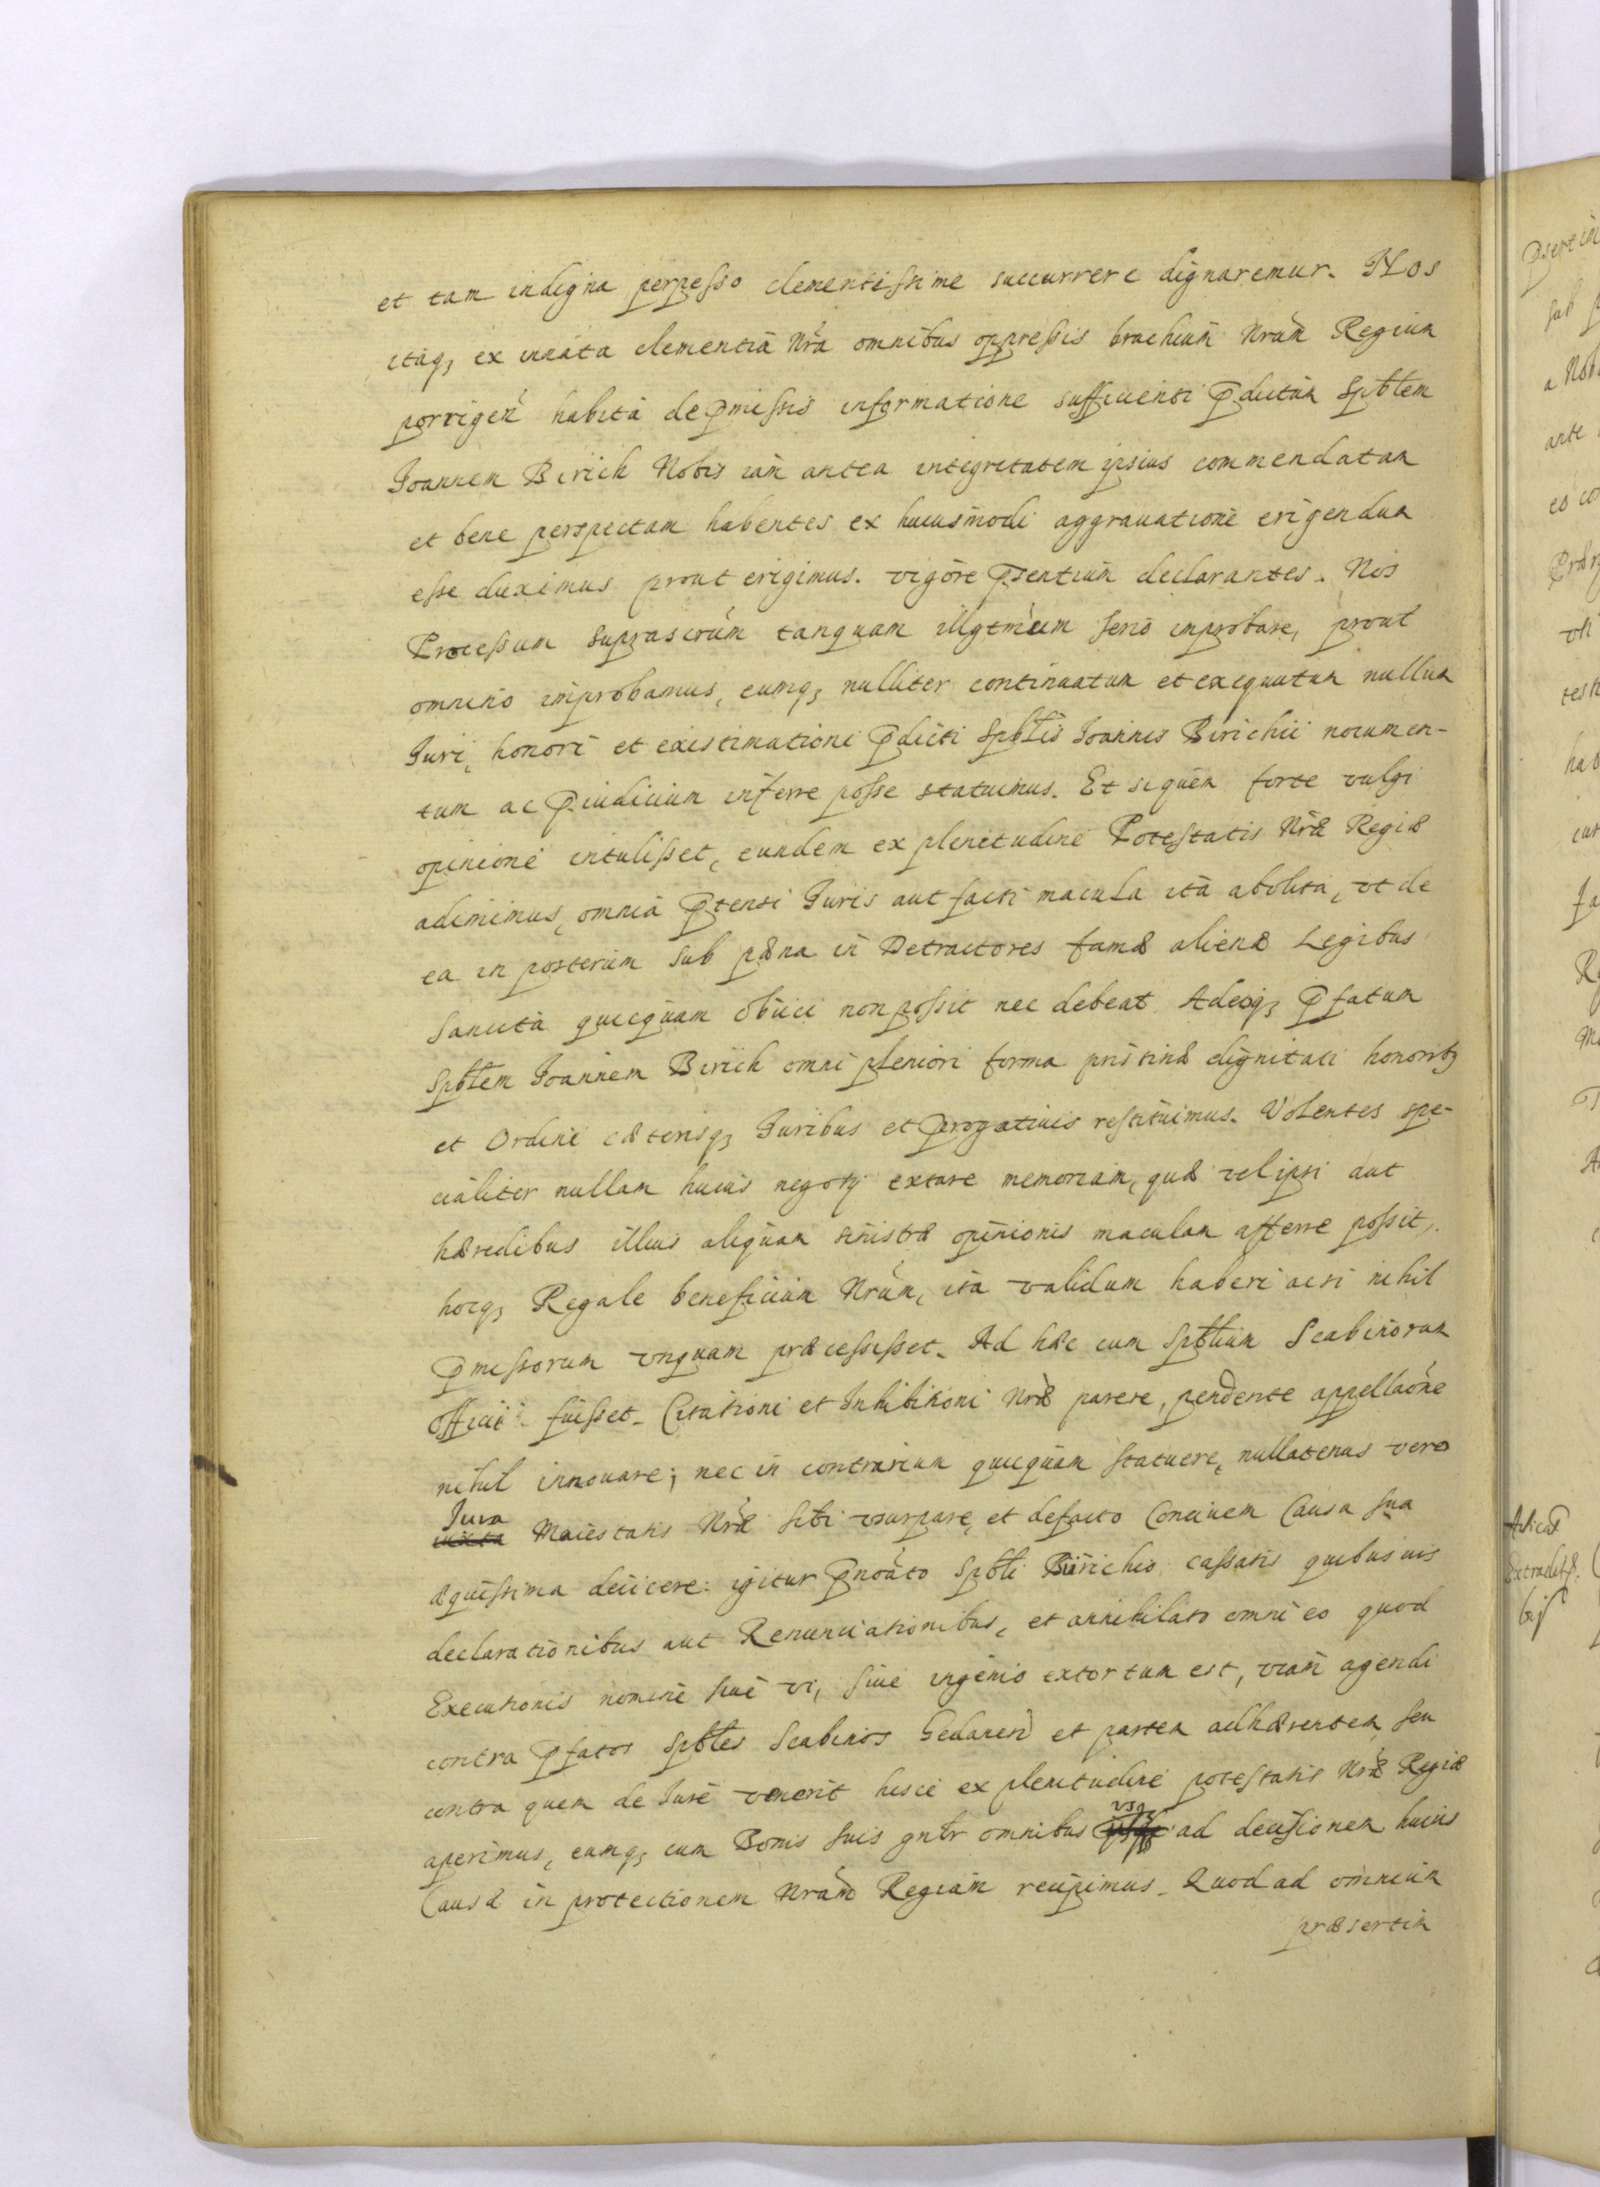 et tam indigna perpesso clementissime succurrere dignaremur. Nos
itaq, ex innata clementiâ Nrã omnibus oppressis brachium Nrum Regium
porrigeñ habitâ de pmissis informatione sufficienti pdictum Spblem
Joannem Birich Nobis iam antea integritatem ipsius commendatam
et bene perspectam habentes ex huiusmodi aggrauatione erigendum
esse duximus prout erigimus. vigore psentium declarantes. Nos
Processum suprascrum tanquam illgtmeum serio improbare, prout
omnino improbamus, eumq, nulliter continuatum et exequutum nullum
Juri, honori et existimationi pdicti Spblis Joannis Birichii nocumen-
tum ac piudicium inferre posse statuimus. Et si quem forte vulgi
opinione intulisset, eundem ex plenitudine Potestatis Nræ Regiæ
adimimus, omnia ptensi Juris aut facti macula ita abolita, vt de
ea in posterum sub pæna in Detractores famæ alienæ Legibus
sancita quicquam obiici non possit nec debeat. Adeoq, pfatum
Spblem Joannem Birich omni pleniori forma pristinæ dignitati honoribq
et Ordini cæterisq, Juribus et prrogatiuis restituimus. Volentes spe-
cialiter nullam huius negotij extare memoriam, quæ vel ipsi aut
hæredibus illius aliquam sinistræ opinionis maculam afferre possit,.
hocq, Regale beneficium Nrum, ita validum haberi acsi nihil
pmissorum vnquam præcessisset. Ad hæc cum Spblium Scabinorum
officii fuisset. Citationi et Inhibitioni Nræ parere, pendente appellaõne
nihil innouare; nec in contrarium quicquam statuere, nullatenus vero
Jura
iuxta Maiestatis Nræ sibi vsurpare, et defacto Conciuem Causa sua
æquissima deiicere: igitur pnoãto Spbli Birichio cassatis quibusuis
declarationibus aut Renunciationibus, et annihilato omni eo quod
Executionis nomine siue vi, siue ingenio extortum est, viam agendi
contra pfatos Spbles Scabinos Gedaneñ et partem adhærentem, seu
contra quem de Jure venerit hisce ex plenitudine potestatis Nræ Regiæ
vsq
aperimus, eumq, cum Bonis suis gnlr omnibus ad decisionem huius
Causæ in protectionem Nram Regiam recipimus. Quod ad omnium
præsertim
Extradit.